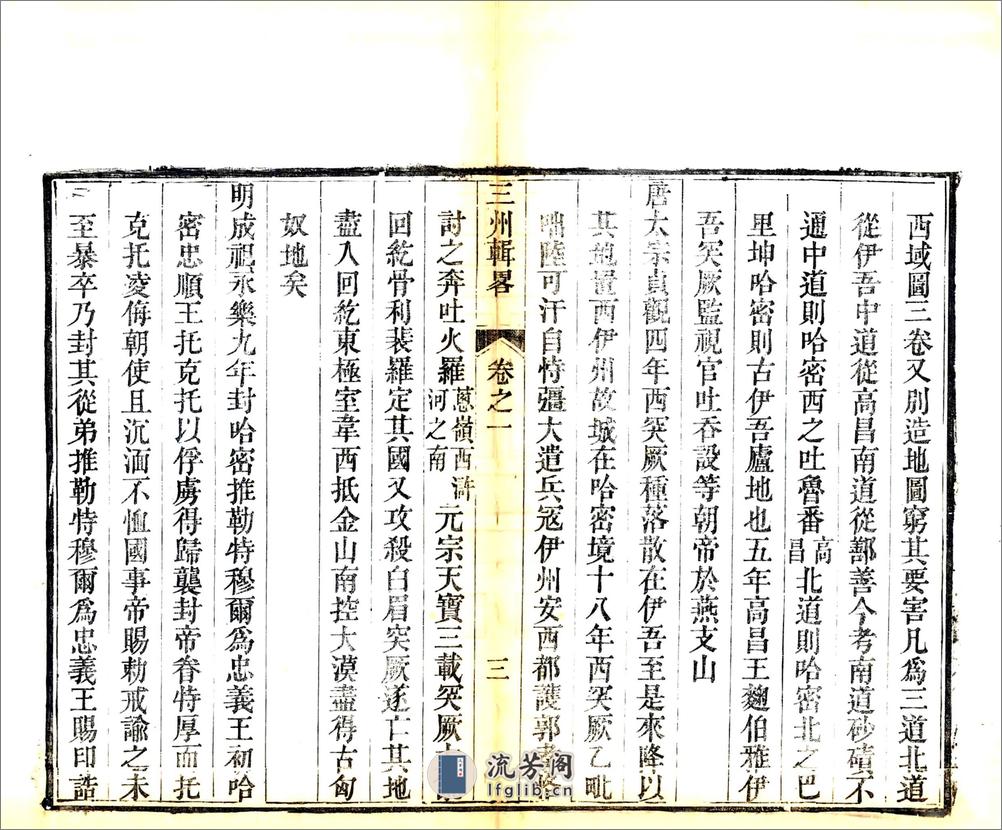 西域圖三卷又別造地圖窮其要害凡爲三道北道
從伊吾中道從高昌南道從鄯善今考南道砂磧不
通中道則哈密西之吐魯番高昌北道則哈密北之巴
里坤哈密則古伊吾廬地也五年高昌王麴伯雅伊
吾突厥監視官吐吞設等朝帝於燕支山
唐太宗貞觀四年西突厥種落散在伊吾至是來降以
其地置西伊州故城在哈密境十八年西突厥乙毗
咄陸可汗自恃彊大遣兵寇伊州安西都護郭孝恪
三州輯畧
卷之一
三
討之奔吐火羅蔥嶺西滸河之南元宗天寶三載突厥大
回紇骨利裴羅定其國又攻殺白眉突厥遂亡其地
盡入回紇東極室韋西抵金山南控大漠盡得古匈
奴地矣
明成祖永樂九年封哈密推勒特穆爾爲忠義王初哈
密忠順王托克托以俘虜得歸襲封帝眷特厚而托
克托凌侮朝使且沉湎不恤國事帝賜勅戒諭之未
至暴卒乃封其從弟推勒特穆爾爲忠義王賜印誥
流芳阁
lfglib.cn